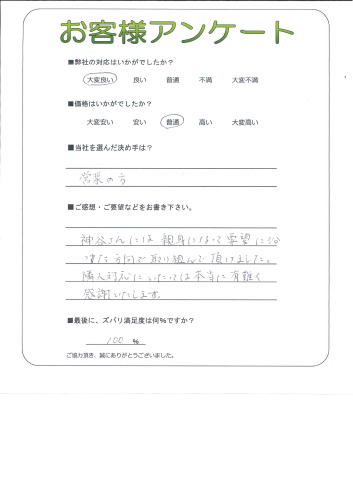 お客様アンケート
■弊社の対応はいかがでしたか?
大変良い 良い 普通 不満 大変不満
■価格はいかがでしたか?
大変安い 安い 普通 高い 大変高い
■当社を選んだ決め手は?
営業の方
■ご感想・ご要望などをお書き下さい。
神谷さんには親身になって要望に沿
った方向で取り組んで頂けました。
隣人対応にいたっては本当に有難く
感謝いたします。
■最後に、ズバリ満足度は何%ですか?
100 %
ご協力頂き、誠にありがとうございました。